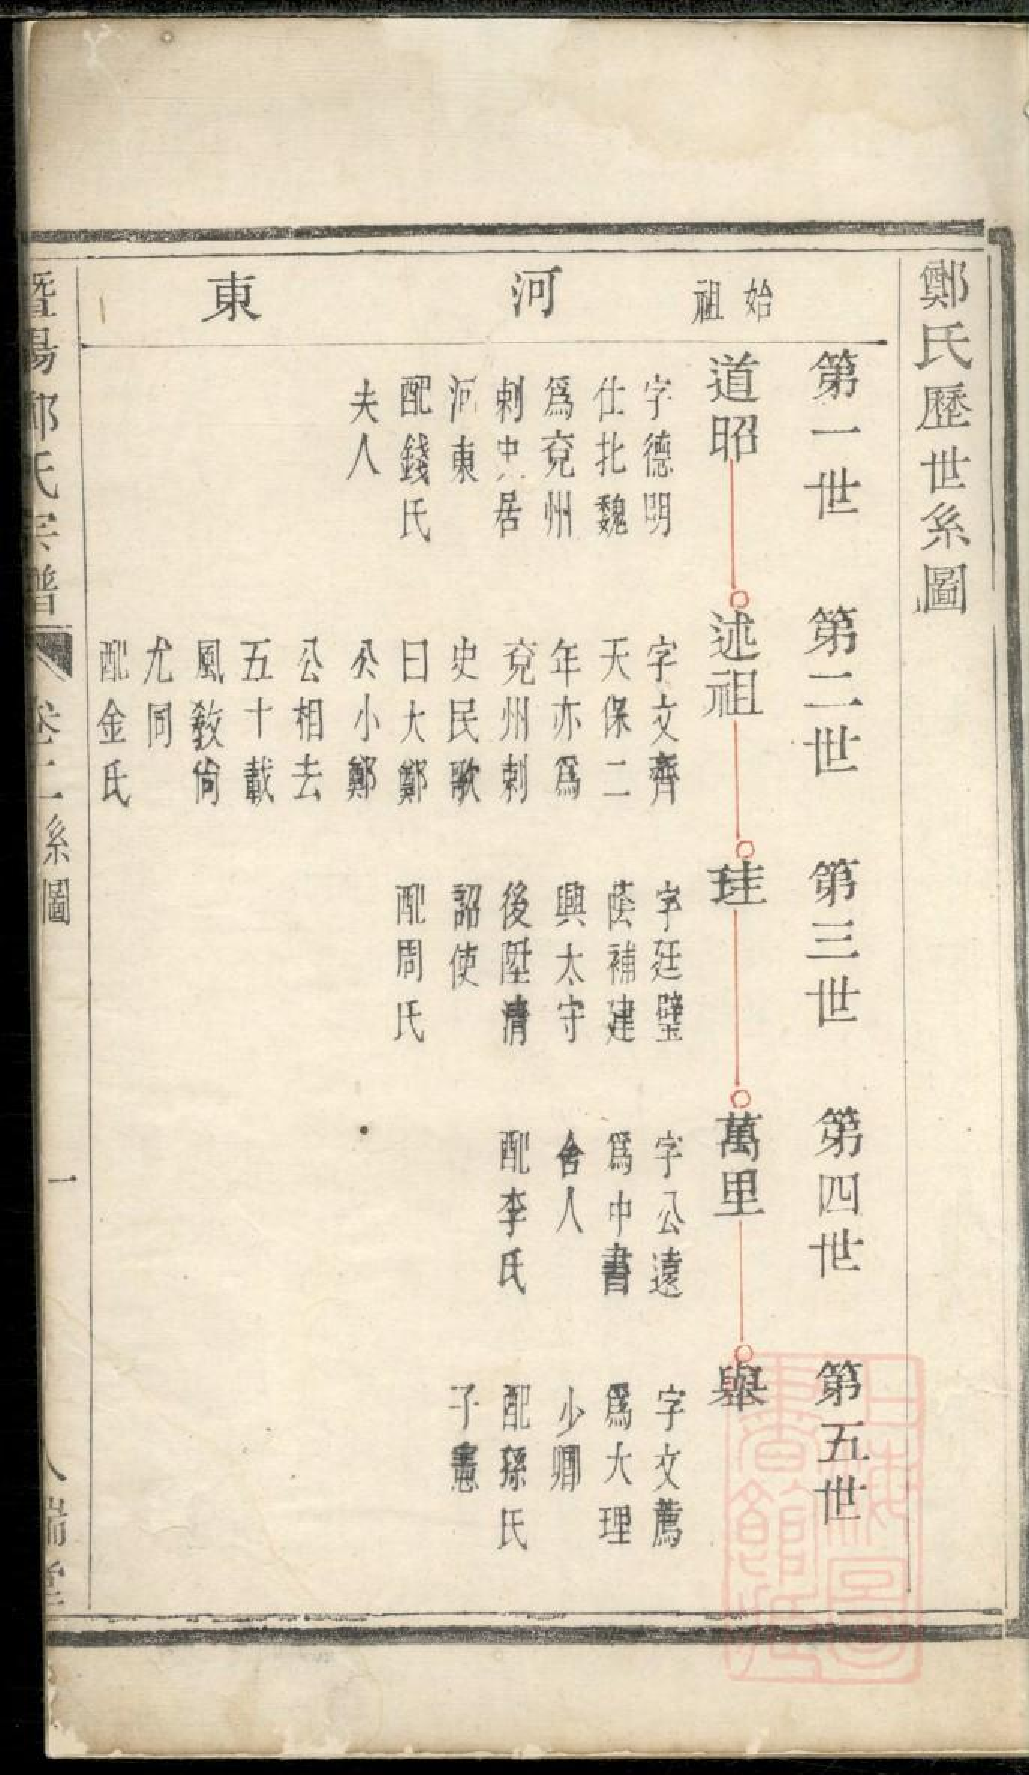 鄭氏歷世系圖
始祖
河東
第一世
道昭
字德明
仕北魏
爲兗州
刺史居
河東
配錢氏
夫人
第二世
述祖
字文齊
天保二
年亦爲
兗州刺
史民歌
曰大鄭
公小鄭
公相去
五十載
風敎尙
尤同
配金氏
第三世
珪
字廷璧
蔭補建
興太守
後陞淸
詔使
配周氏
第四世
萬里
字公遠
爲中書
舍人
配李氏
第五世
舉
字文薦
爲大理
少卿
配孫氏
子憲
暨陽鄭氏宗譜
卷二系圖
一
瑞堂
上海圖書館藏